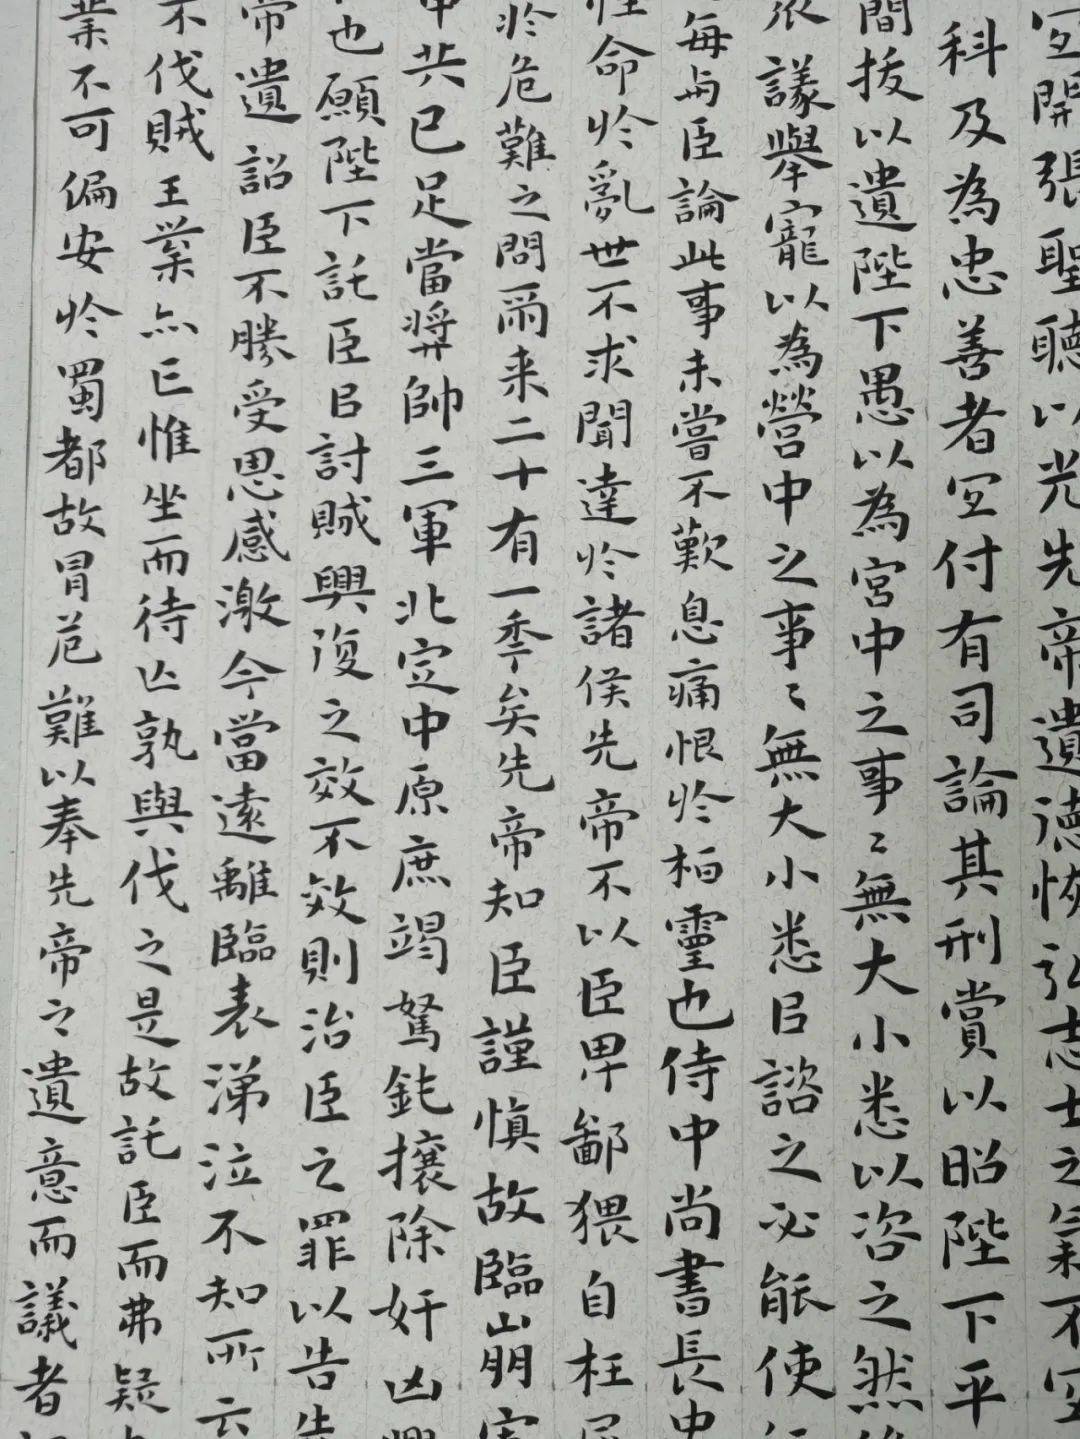 宜開張聖聽以光先帝遺德恢弘志士之氣不宜
科及為忠善者宜付有司論其刑賞以昭陛下平
間拔以遺陛下愚以為宮中之事〻無大小悉以咨之然
議舉寵以為營中之事〻無大小悉㠯諮之必能使
每與臣論此事未嘗不歎息痛恨於桓靈也侍中尚書長史
性命於亂世不求聞達於諸侯先帝不以臣卑鄙猥自枉屈
於危難之間爾来二十有一秊矣先帝知臣謹慎故臨崩寄
中共已足當奬帥三軍北定中原庶竭駑鈍攘除奸凶興
也願陛下託臣㠯討賊興復之效不效則治臣之罪以告先
帝遺詔臣不勝受恩感激今當遠離臨表涕泣不知所云
不伐賊王業亦亡惟坐而待亡孰與伐之是故託臣而弗疑也
業不可偏安於蜀都故冒危難以奉先帝之遺意而議者